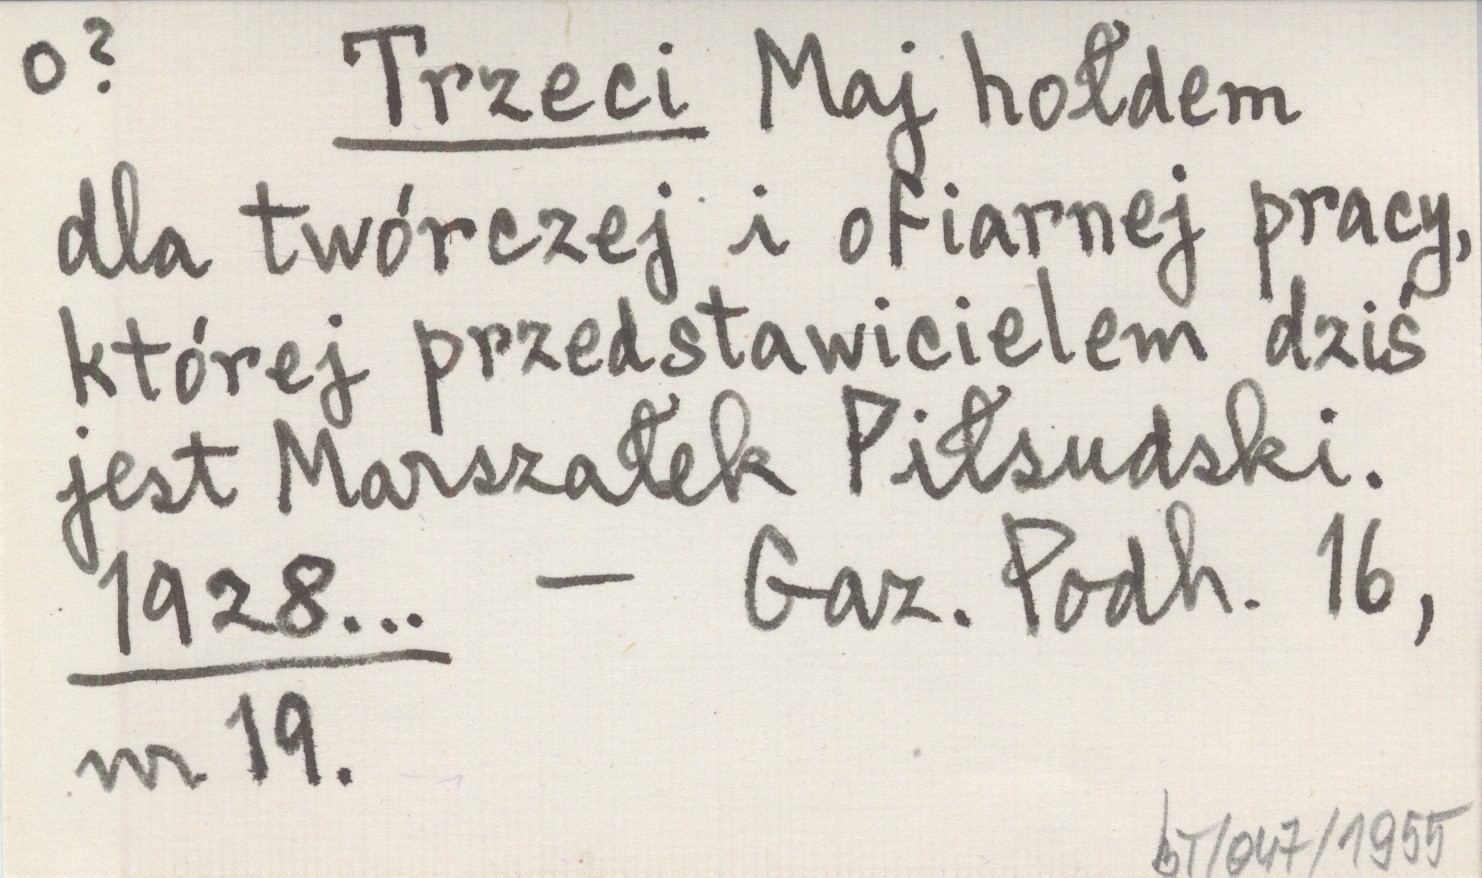 o? Trzeci Maj hołdem
dla twórczej i ofiarnej pracy,
której przedstawicielem dziś
jest Marszałek Piłsudski.
1928... — Gaz. Podh. 16,
nr 19.
bT/047/1955